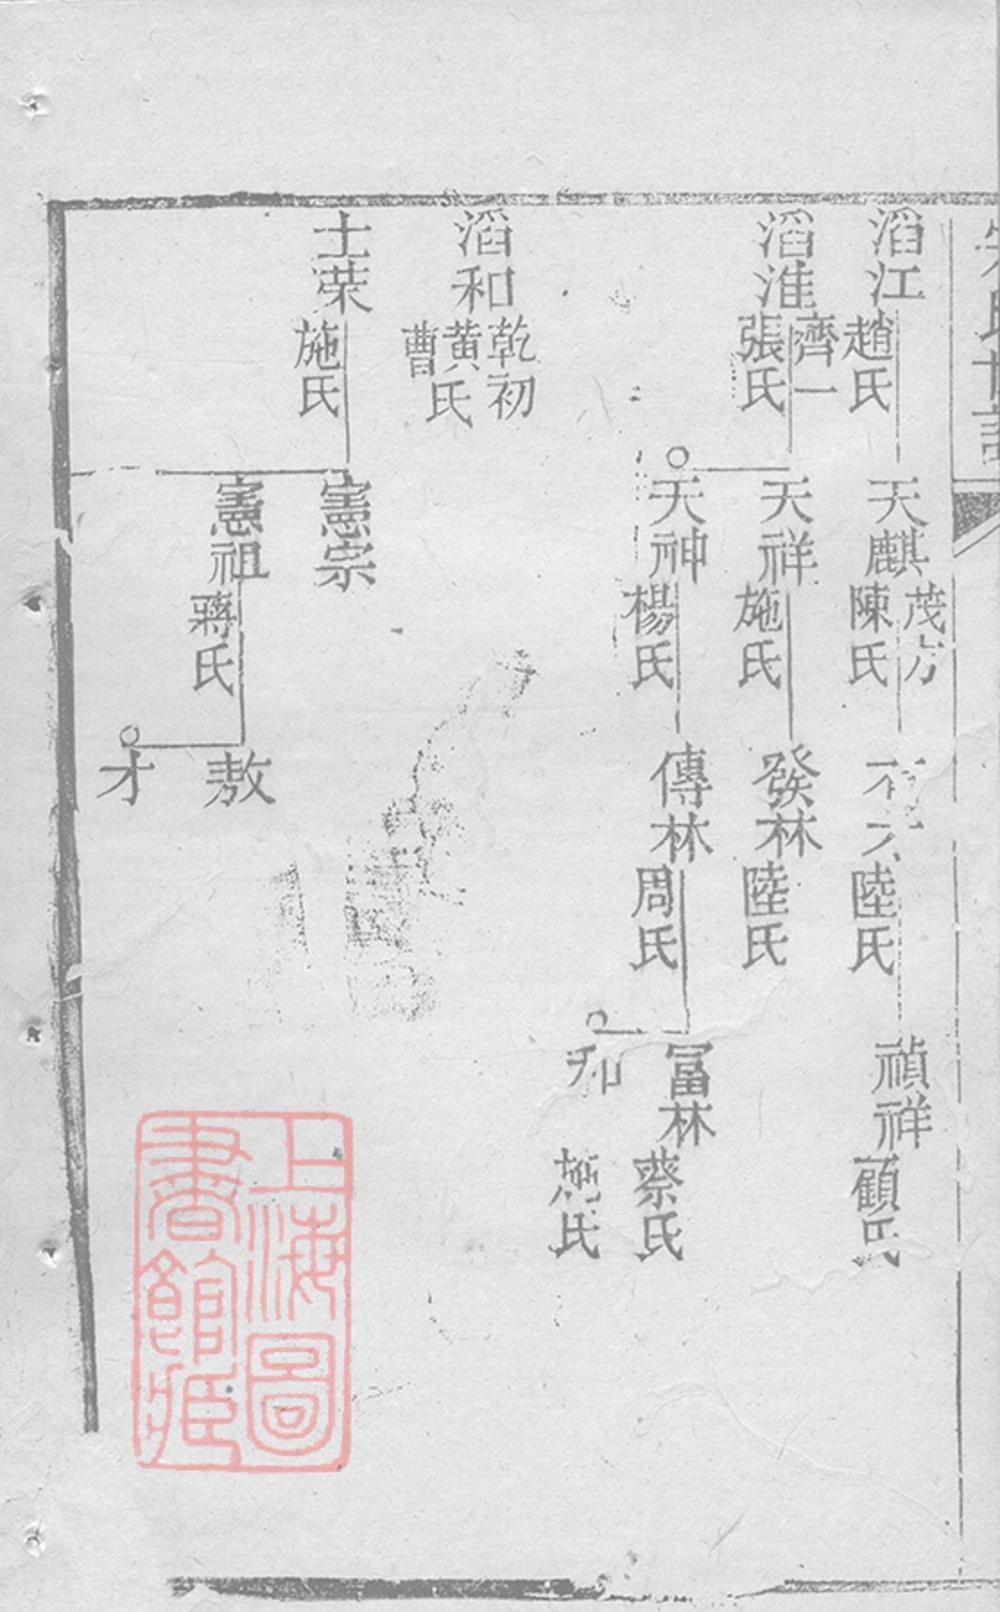 滔江
趙氏
天麒
茂
陳氏
陸氏
禎祥
顧氏
滔淮
齊一
張氏
天祥
施氏
發林
陸氏
天神
楊氏
傳林
周氏
冨林
蔡氏
施氏
滔和
乾初
黃氏
曹
士荣
施氏
憲宗
憲祖
蔣氏
敖
才
上海圖
書館藏